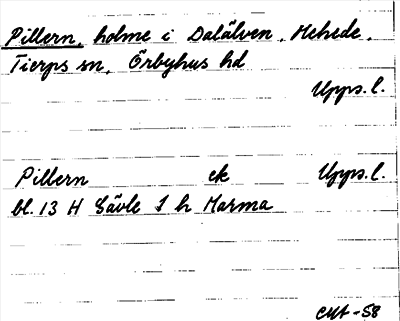 Pillern, holme i Dalälven, Mehede,
Tierps sn, Örbyhus hd
Upps. l.
Pillern ek Upps. l.
bl. 13 H Gävle S h Marma
-58